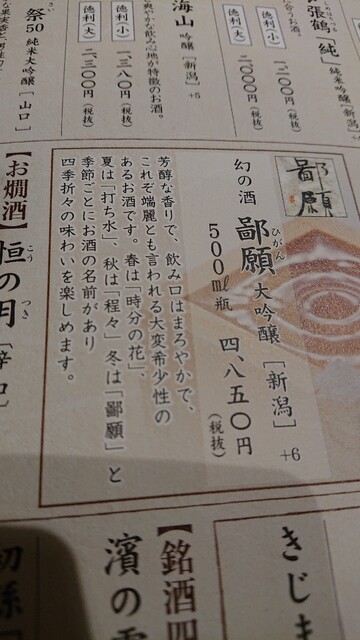 張鶴「純」純米吟醸［新潟］
徳利（小）
一、二〇〇円（税抜）
徳利（大）
二、〇〇〇円（税抜）
海山 吟醸［新潟］+5
爽やかな飲み心地が特徴のお酒。
徳利（小）
一、三八〇円（税抜）
徳利（大）
二、三〇〇円（税抜）
祭50 純米大吟醸［山口］
鄙願
幻の酒 鄙願 大吟醸［新潟］+6
ひがん
500㎖瓶 四、八五〇円
（税抜）
芳醇な香りで、飲み口はまろやかで、
これぞ端麗とも言われる大変希少性の
あるお酒です。春は「時分の花」、
夏は「打ち水」、秋は「程々」冬は「鄙願」と
季節ごとにお酒の名前があり
四季折々の味わいを楽しめます。
【お燗酒】恒の月［辛口］
こう つき
きじま
【銘酒四
濱の
初孫